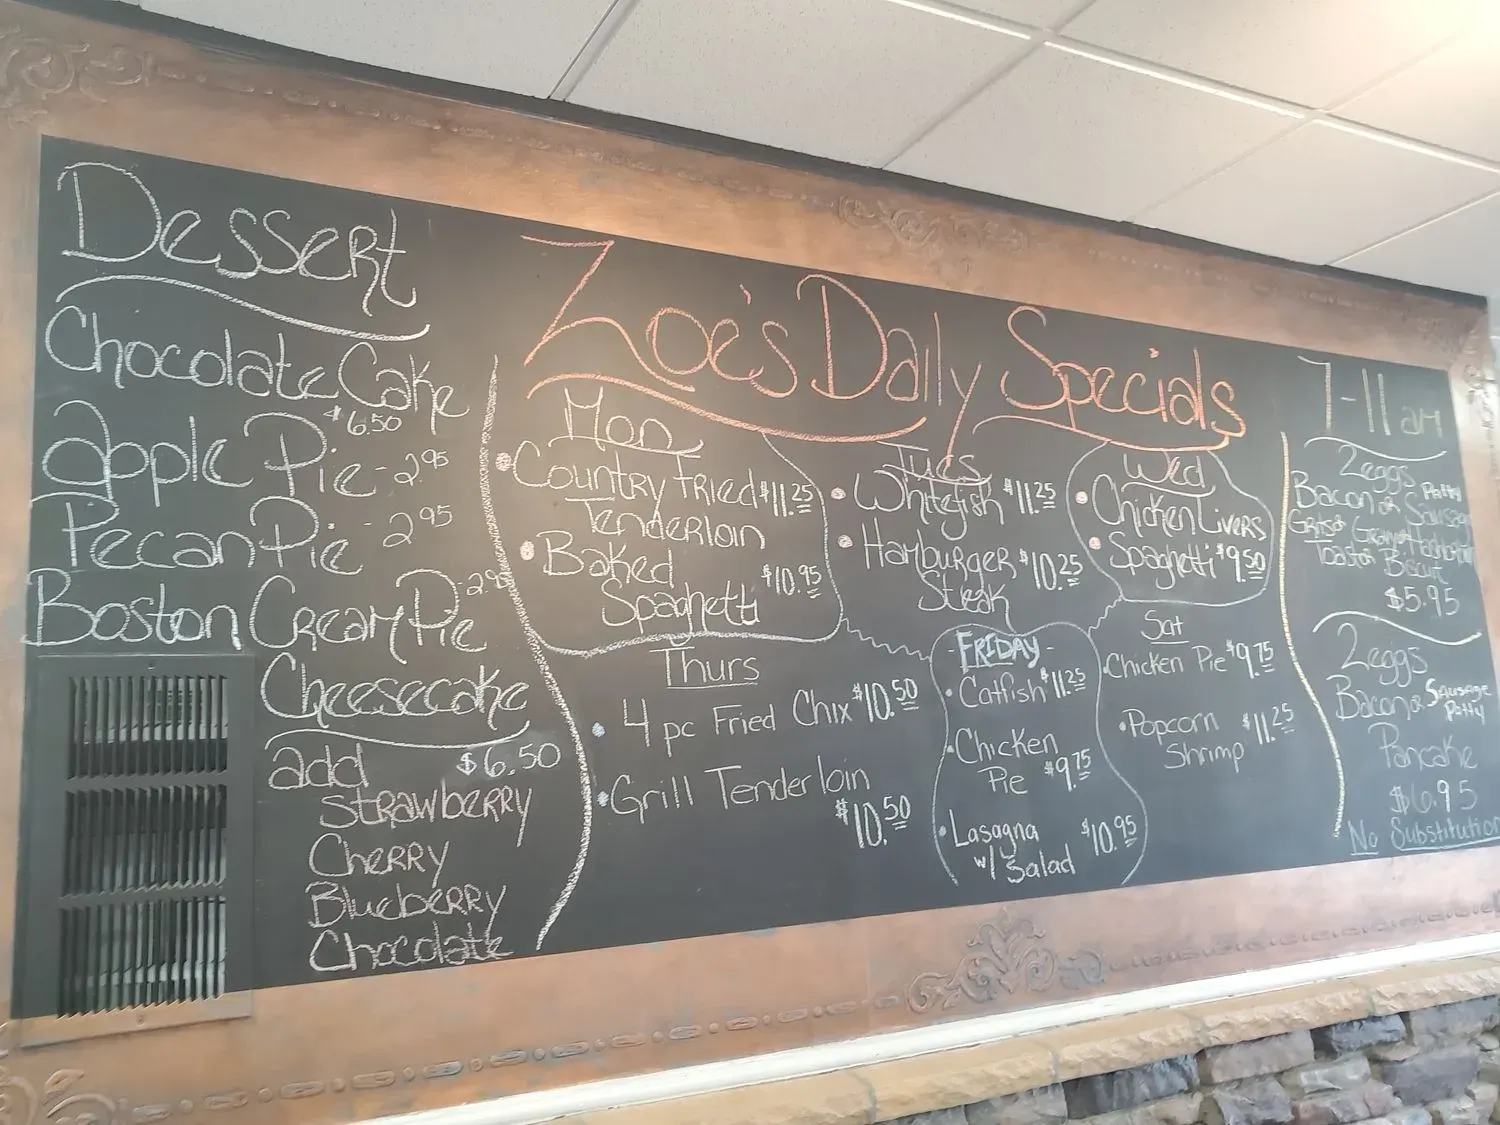 Dessert
Chocolate Cake
$6.50
Apple Pie - 2.95
Pecan Pie - 2.95
Boston Cream Pie - 2.95
Cheesecake
$6.50
add
Strawberry
Cherry
Blueberry
Chocolate
Zoe's Daily Specials
Mon
Country Fried $11.25
Tenderloin
Baked
Spaghetti $10.95
Tues
Whitefish $11.25
Hamburger $10.25
Steak
Wed
Chicken Livers
Spaghetti $9.50
Thurs
4 pc Fried Chix $10.50
Grill Tenderloin
$10.50
- FRIDAY -
Catfish $11.25
Chicken
Pie $9.75
Lasagna $10.95
w/ Salad
Sat
Chicken Pie $9.75
Popcorn $11.25
Shrimp
7-11 am
2 eggs
Bacon or Sausage Patty
Grits or Gravy or Hashbrown
Toast or Biscuit
$5.95
2 eggs
Bacon or Sausage
Patty
Pancake
$6.95
No Substitution